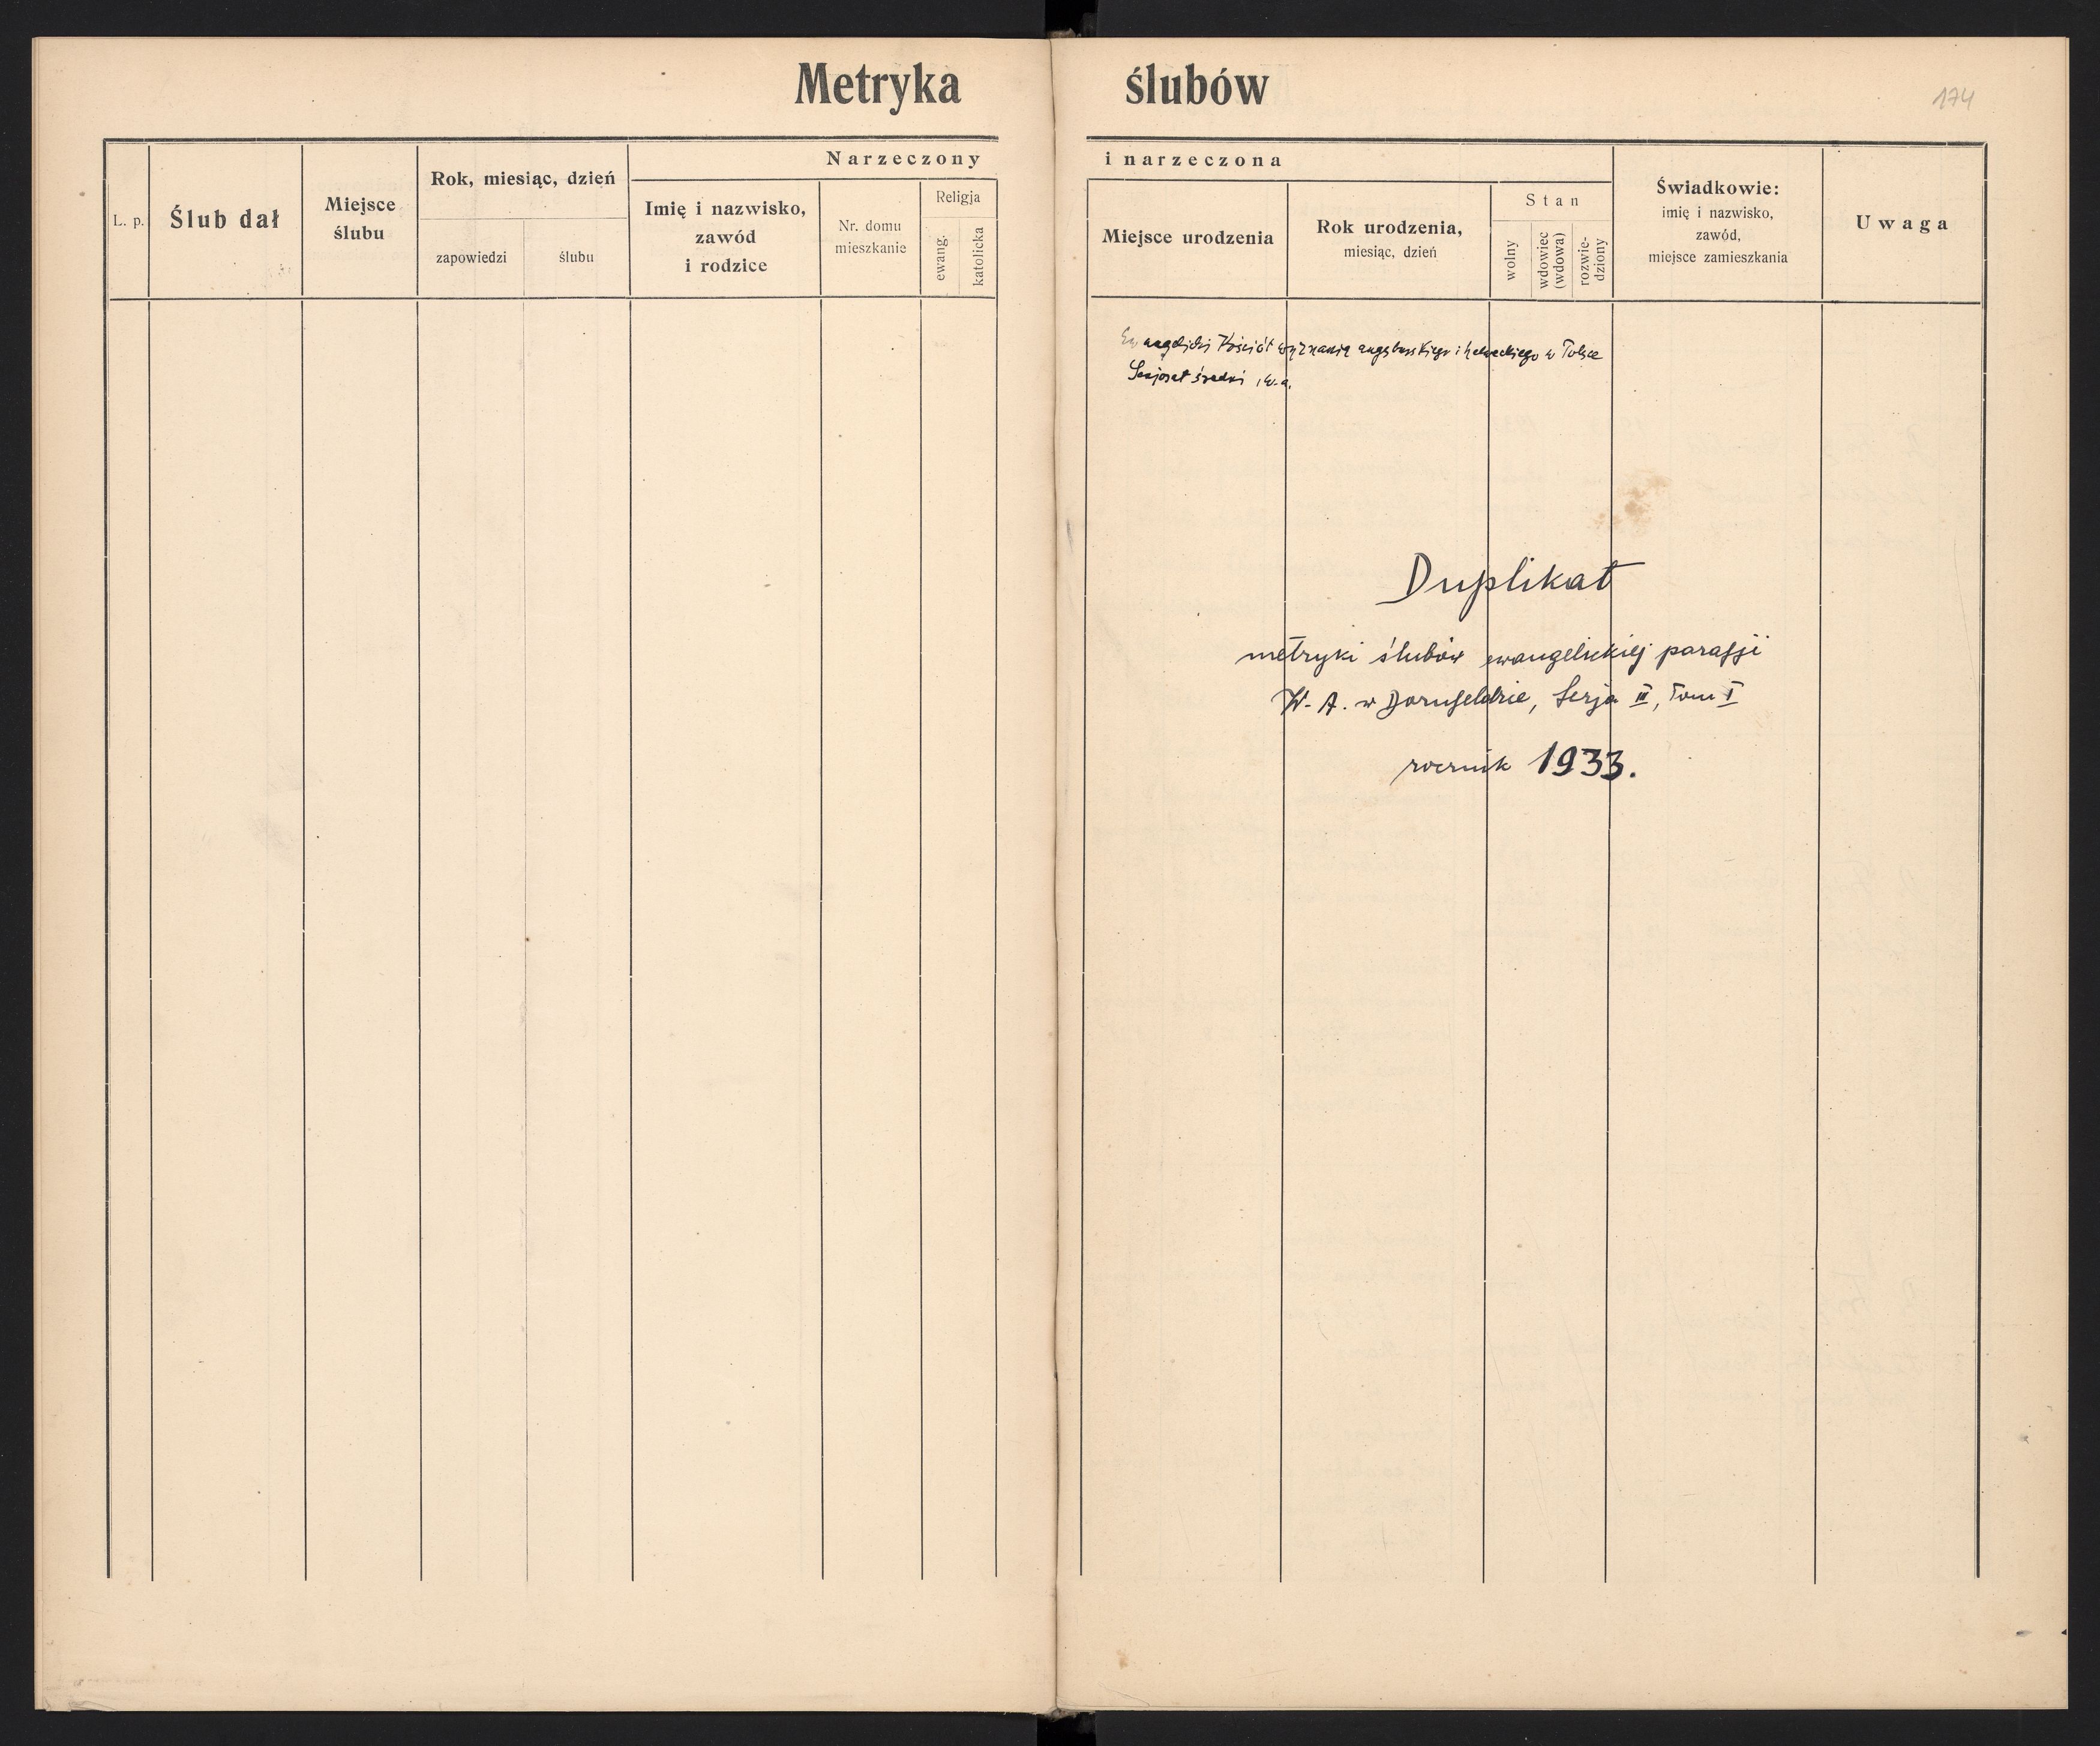 Metryka ślubów
174
Narzeczony i narzeczona
L. p.
Ślub dał
Miejsce
ślubu
Rok, miesiąc, dzień
zapowiedzi
ślubu
Imię i nazwisko,
zawód
i rodzice
Nr. domu
mieszkanie
Religja
ewang.
katolicka
Miejsce urodzenia
Rok urodzenia,
miesiąc, dzień
Stan
wolny
wdowiec
(wdowa)
rozwie-
dziony
Świadkowie:
imię i nazwisko,
zawód,
miejsce zamieszkania
Uwaga
Ewangelicki Kościół wyznania augsburskiego i helweckiego w Polsce
Senjorat średni
Duplikat
metryki ślubów ewangelickiej parafji
W. A. w Dornfeldzie, Serja III, Tom I
rocznik 1933.